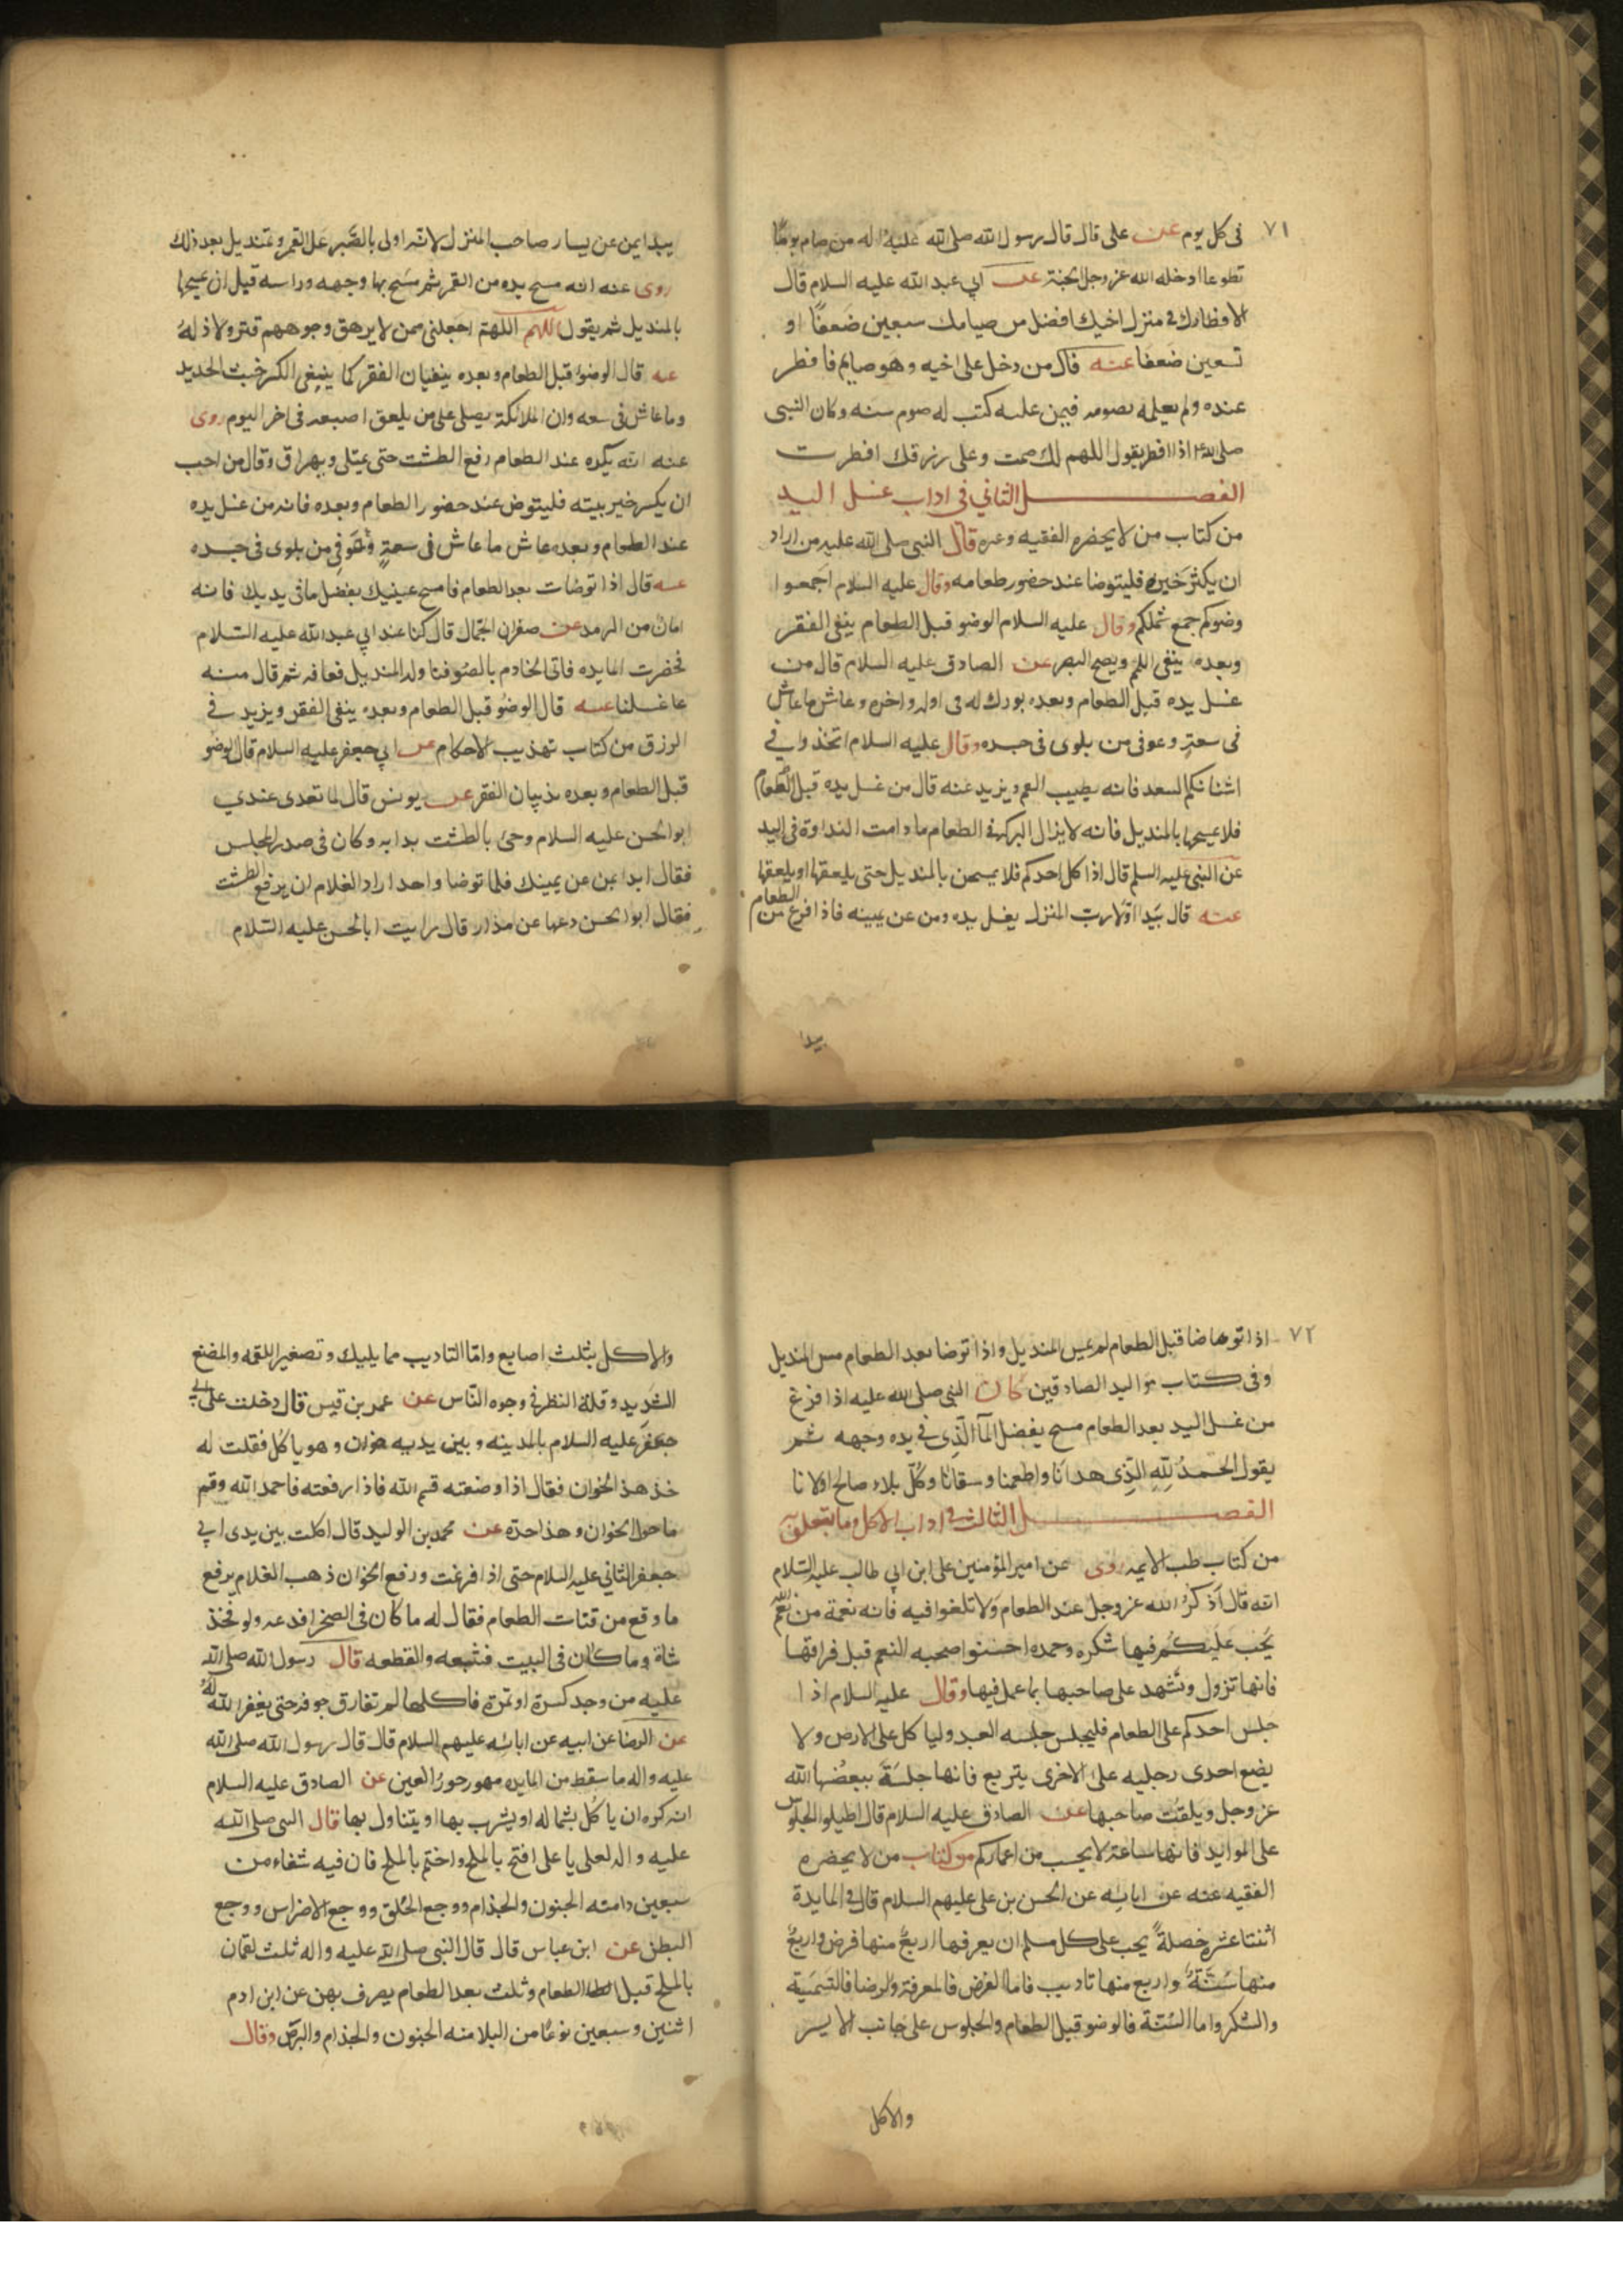 ٧١
فى كل يوم عن على قال قال رسول الله صلى الله عليه واله من صام يومًا
تطوعا ادخله الله عز وجل الجنة عن ابي عبد الله عليه السلام قال
لافطارك فى منزل اخيك افضل من صيامك سبعين ضعفًا او
تسعين ضعفا عنه قال من دخل على اخيه وهو صايم فافطر
عنده ولم يعلمه بصومه فيمن عليه كتب له صوم سنه وكان النبى
صلى الله اذا افطر يقول اللهم لك صمت وعلى رزقك افطرت
الفصل الثاني فى اداب غسل اليد
من كتاب من لا يحضره الفقيه وعره قال النبى صلى الله عليه من اراد
ان يكثر خيره فليتوضا عند حضور طعامه وقال عليه السلام اجمعوا
وضوكم جمع شملكم وقال عليه السلام الوضو قبل الطعام ينفى الفقر
وبعده ينفى اللمم ويصح البصر عن الصادق عليه السلام قال من
غسل يده قبل الطعام وبعده بورك له فى اوله واخره وعاش ما عاش
فى سعةٍ وعوفى من بلوى فى جسده وقال عليه السلام اتخذوا في
اشنانكم السعد فانه يطيب الفم ويزيد عنه قال من غسل يده قبل الطعام
فلا يمسحها بالمنديل فانه لا يزال البركة فى الطعام ما دامت النداوة فى اليد
عن النبى عليه السلم قال اذا اكل احدكم فلا يمسحن بالمنديل حتى يلعقها او يلعقها
عنه قال يبدا اولا رب المنزل يغسل يده ومن عن يمينه فاذا فرغ من الطعام
يبدا
يبدا بمن عن يسار صاحب المنزل لانه اولى بالصبر على الغمر وتمندل بعد ذلك
روى عنه انه مسح يده من الغمر ثم مسح بها وجهه وراسه قبل ان يمسحها
بالمنديل ثم يقول اللهم اللهم اجعلنى ممن لا يرهق وجوههم قتر ولا ذلة
عنه قال الوضوء قبل الطعام وبعده ينفيان الفقر كما ينفى الكير خبث الحديد
وما عاش فى سعه وان الملائكة يصلى على من يلعق اصبعه فى اخر اليوم روى
عنه انه يكره عند الطعام رفع الطشت حتى يمتلى ويهراق وقال من احب
ان يكثر خير بيته فليتوض عند حضور الطعام وبعده فانه من غسل يده
عند الطعام وبعده عاش ما عاش فى سعةٍ وعوفى من بلوى فى جسده
عنه قال اذا توضات بعد الطعام فامسح عينيك بفضل ما فى يديك فانه
امان من الرمد عن صفوان الجمال قال كنا عند ابي عبد الله عليه السلام
فحضرت المايده فاتى الخادم بالوضو فناوله المنديل فعافه ثم قال منه
غسلنا عنه قال الوضو قبل الطعام وبعده ينفى الفقر ويزيد في
الرزق من كتاب تهذيب الاحكام عن ابي جعفر عليه السلام قال الوضو
قبل الطعام وبعده يذيبان الفقر عن يونس قال لما تغدى عندي
ابو الحسن عليه السلام وجئ بالطشت بدا به وكان فى صدر المجلس
فقال ابدا بمن عن يمينك فلما توضا واحد اراد الغلام ان يرفع الطشت
فقال ابو الحسن دعها عن مذار قال رايت ابا الحسن عليه السلام
٧٢
اذا توضا قبل الطعام لم يمس المنديل واذا توضا بعد الطعام مس المنديل
وفى كتاب مواليد الصادقين كان النبى صلى الله عليه اذا فرغ
من غسل اليد بعد الطعام مسح بفضل الماء الذى فى يده وجهه ثم
يقول الحمد لله الذى هدانا واطعمنا وسقانا وكل بلاء صالح اولانا
الفصل الثالث فى اداب الاكل وما يتعلق به
من كتاب طب الايمه روى عن امير المؤمنين على ابن ابي طالب عليه السلام
انه قال اذكروا الله عز وجل عند الطعام ولا تلغوا فيه فانه نعمة من نعم الله
يجب عليكم فيها شكره وحمده احسنوا صحبه النعم قبل فراقها
فانها تزول وتشهد على صاحبها بما عمل فيها وقال عليه السلام اذا
جلس احدكم على الطعام فليجلس جلسه العبد وليا كل على الارض ولا
يضع احدى رجليه على الاخرى يتربع فانها جلسة يبغضها الله
عز وجل ويمقت صاحبها عن الصادق عليه السلام قال اطيلوا الجلوس
على الموايد فانها ساعة لا يحسب من اعماركم من كتاب من لا يحضره
الفقيه عنه عن ابائه عن الحسن بن على عليهم السلام قال فى المايدة
اثنتا عشرة خصلةً يجب على كل مسلم ان يعرفها اربعٌ منها فرض واربعٌ
منها سُنّةٌ واربع منها تاديب فاما الفرض فالمعرفة والرضا فالتسمية
والشكر واما السُنّة فالوضو قبل الطعام والجلوس على جانب الايسر
والاكل
والاكل بثلث اصابع وامّا التاديب مما يليك وتصغير اللقمه والمضغ
الشديد وقلة النظر فى وجوه الناس عن عمر بن قيس قال دخلت على ابي
جعفر عليه السلام بالمدينه وبين يديه خوان وهو ياكل فقلت له
خذ هذ الخوان فقال اذا وضعته قسم الله فاذا رفعته فاحمد الله وقم
ما حول الخوان وهذا حدّه عن محمد بن الوليد قال اكلت بين يدى ابي
جعفر الثاني عليه السلام حتى اذا فرغت ورفع الخوان ذهب الغلام يرفع
ما وقع من فتات الطعام فقال له ما كان فى الصحرا فدعه ولو فخذ
شاة وما كان فى البيت فتتبعه والقطعه قال رسول الله صلى الله
عليه من وجد كسرة او تمرة فاكلها لم تفارق جوفه حتى يغفر الله له
عن الرضا عن ابيه عن ابائه عليهم السلام قال قال رسول الله صلى الله
عليه واله ما سقط من المايده مهور حور العين عن الصادق عليه السلام
انه كره ان ياكل بشماله او يشرب بها او يتناول بها قال النبى صلى الله
عليه واله لعلى يا على افتح بالملح واختم بالملح فان فيه شفاء من
سبعين داء منه الجنون والجذام ووجع الحلق ووجع الاضراس ووجع
البطن عن ابن عباس قال قال النبى صلى الله عليه واله ثلث لقمان
بالملح قبل الطعام وثلث بعد الطعام يصرف بهن عن ابن ادم
اثنين وسبعين نوعًا من البلا منه الجنون والجذام والبرص وقال